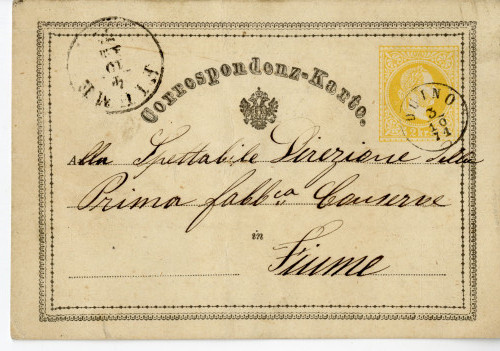 Correspondenz-Karte.
FIUME
4
10
DUINO
3
10
74
Alla Spettabile Direzione della
Prima fabb.ca Conserve
in
Fiume